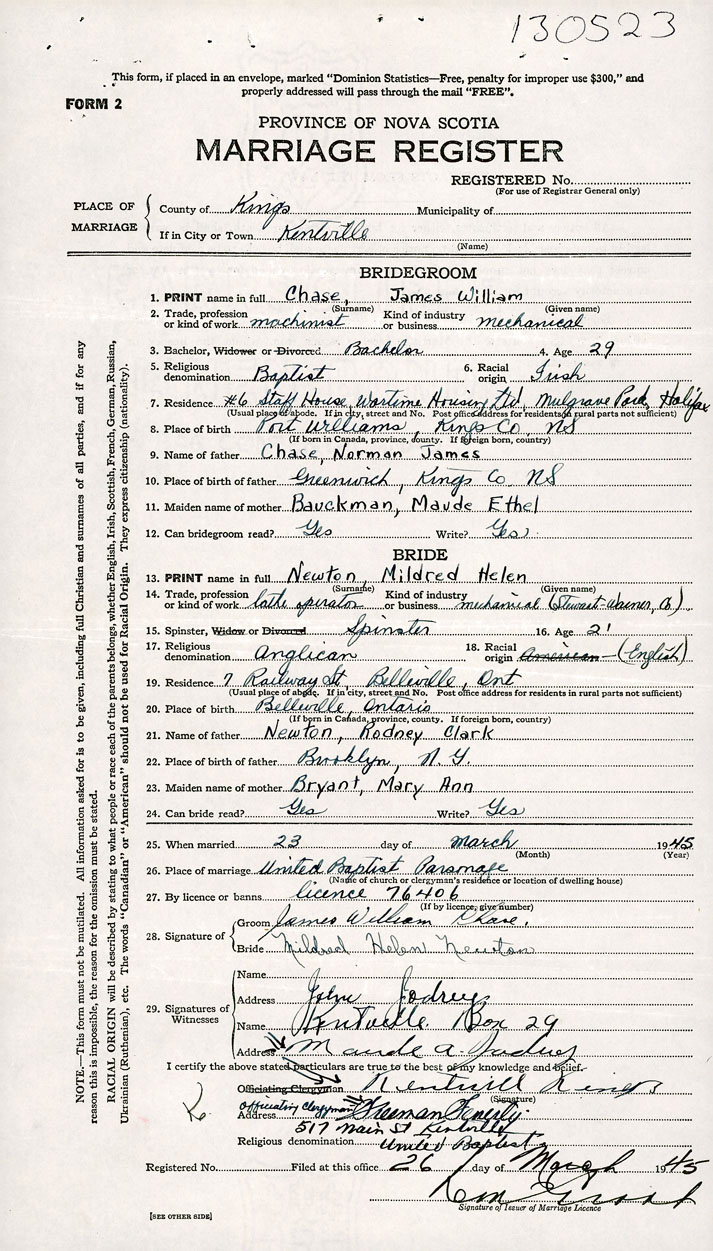 130523
This form, if placed in an envelope, marked "Dominion Statistics—Free, penalty for improper use $300," and
properly addressed will pass through the mail "FREE".
FORM 2
PROVINCE OF NOVA SCOTIA
MARRIAGE REGISTER
REGISTERED No.
(For use of Registrar General only)
PLACE OF MARRIAGE
County of Kings Municipality of
If in City or Town Kentville
(Name)
BRIDEGROOM
1. PRINT name in full Chase, James William
(Surname) (Given name)
2. Trade, profession or kind of work machinist Kind of industry or business mechanical
3. Bachelor, Widower or Divorced Bachelor 4. Age 29
5. Religious denomination Baptist 6. Racial origin Irish
7. Residence #6 Staff House, Wartime Housing Ltd, Mulgrave Park, Halifax
(Usual place of abode. If in city, street and No. Post office address for residents in rural parts not sufficient)
8. Place of birth Port Williams, Kings Co, NS
(If born in Canada, province, county. If foreign born, country)
9. Name of father Chase, Norman James
10. Place of birth of father Greenwich, Kings Co, NS
11. Maiden name of mother Bauckman, Maude Ethel
12. Can bridegroom read? Yes Write? Yes
BRIDE
13. PRINT name in full Newton, Mildred Helen
(Surname) (Given name)
14. Trade, profession or kind of work lathe operator Kind of industry or business mechanical (Stewart-Warner, Co)
15. Spinster, Widow or Divorced Spinster 16. Age 21
17. Religious denomination Anglican 18. Racial origin American (English)
19. Residence 7 Railway St, Belleville, Ont
(Usual place of abode. If in city, street and No. Post office address for residents in rural parts not sufficient)
20. Place of birth Belleville, Ontario
(If born in Canada, province, county. If foreign born, country)
21. Name of father Newton, Rodney Clark
22. Place of birth of father Brooklyn, N.Y.
23. Maiden name of mother Bryant, Mary Ann
24. Can bride read? Yes Write? Yes
25. When married 23 day of March 1945
(Month) (Year)
26. Place of marriage United Baptist Parsonage
(Name of church or clergyman's residence or location of dwelling house)
27. By licence or banns licence 76406
(If by licence, give number)
28. Signature of
Groom James William Chase.
Bride Mildred Helen Newton
29. Signatures of Witnesses
Name
Address John Jodrey
Name Kentville Box 29
Address Maude A Jodrey
I certify the above stated particulars are true to the best of my knowledge and belief.
Officiating Clergyman Kentville Kings
(Signature)
Officiating Clergyman Freeman Fenerty
Address 517 Main St Kentville
Religious denomination United Baptist
Registered No. Filed at this office 26 day of March 1945
Signature of Issuer of Marriage Licence
[SEE OTHER SIDE]
NOTE.—This form must not be mutilated. All information asked for is to be given, including full Christian and surnames of all parties, and if for any
reason this is impossible, the reason for the omission must be stated.
RACIAL ORIGIN will be described by stating to what people or race each of the parents belongs, whether English, Irish, Scottish, French, German, Russian,
Ukrainian (Ruthenian), etc. The words "Canadian" or "American" should not be used for Racial Origin. They express citizenship (nationality).